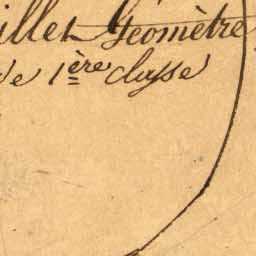 illet Géomètre
de 1ère classe